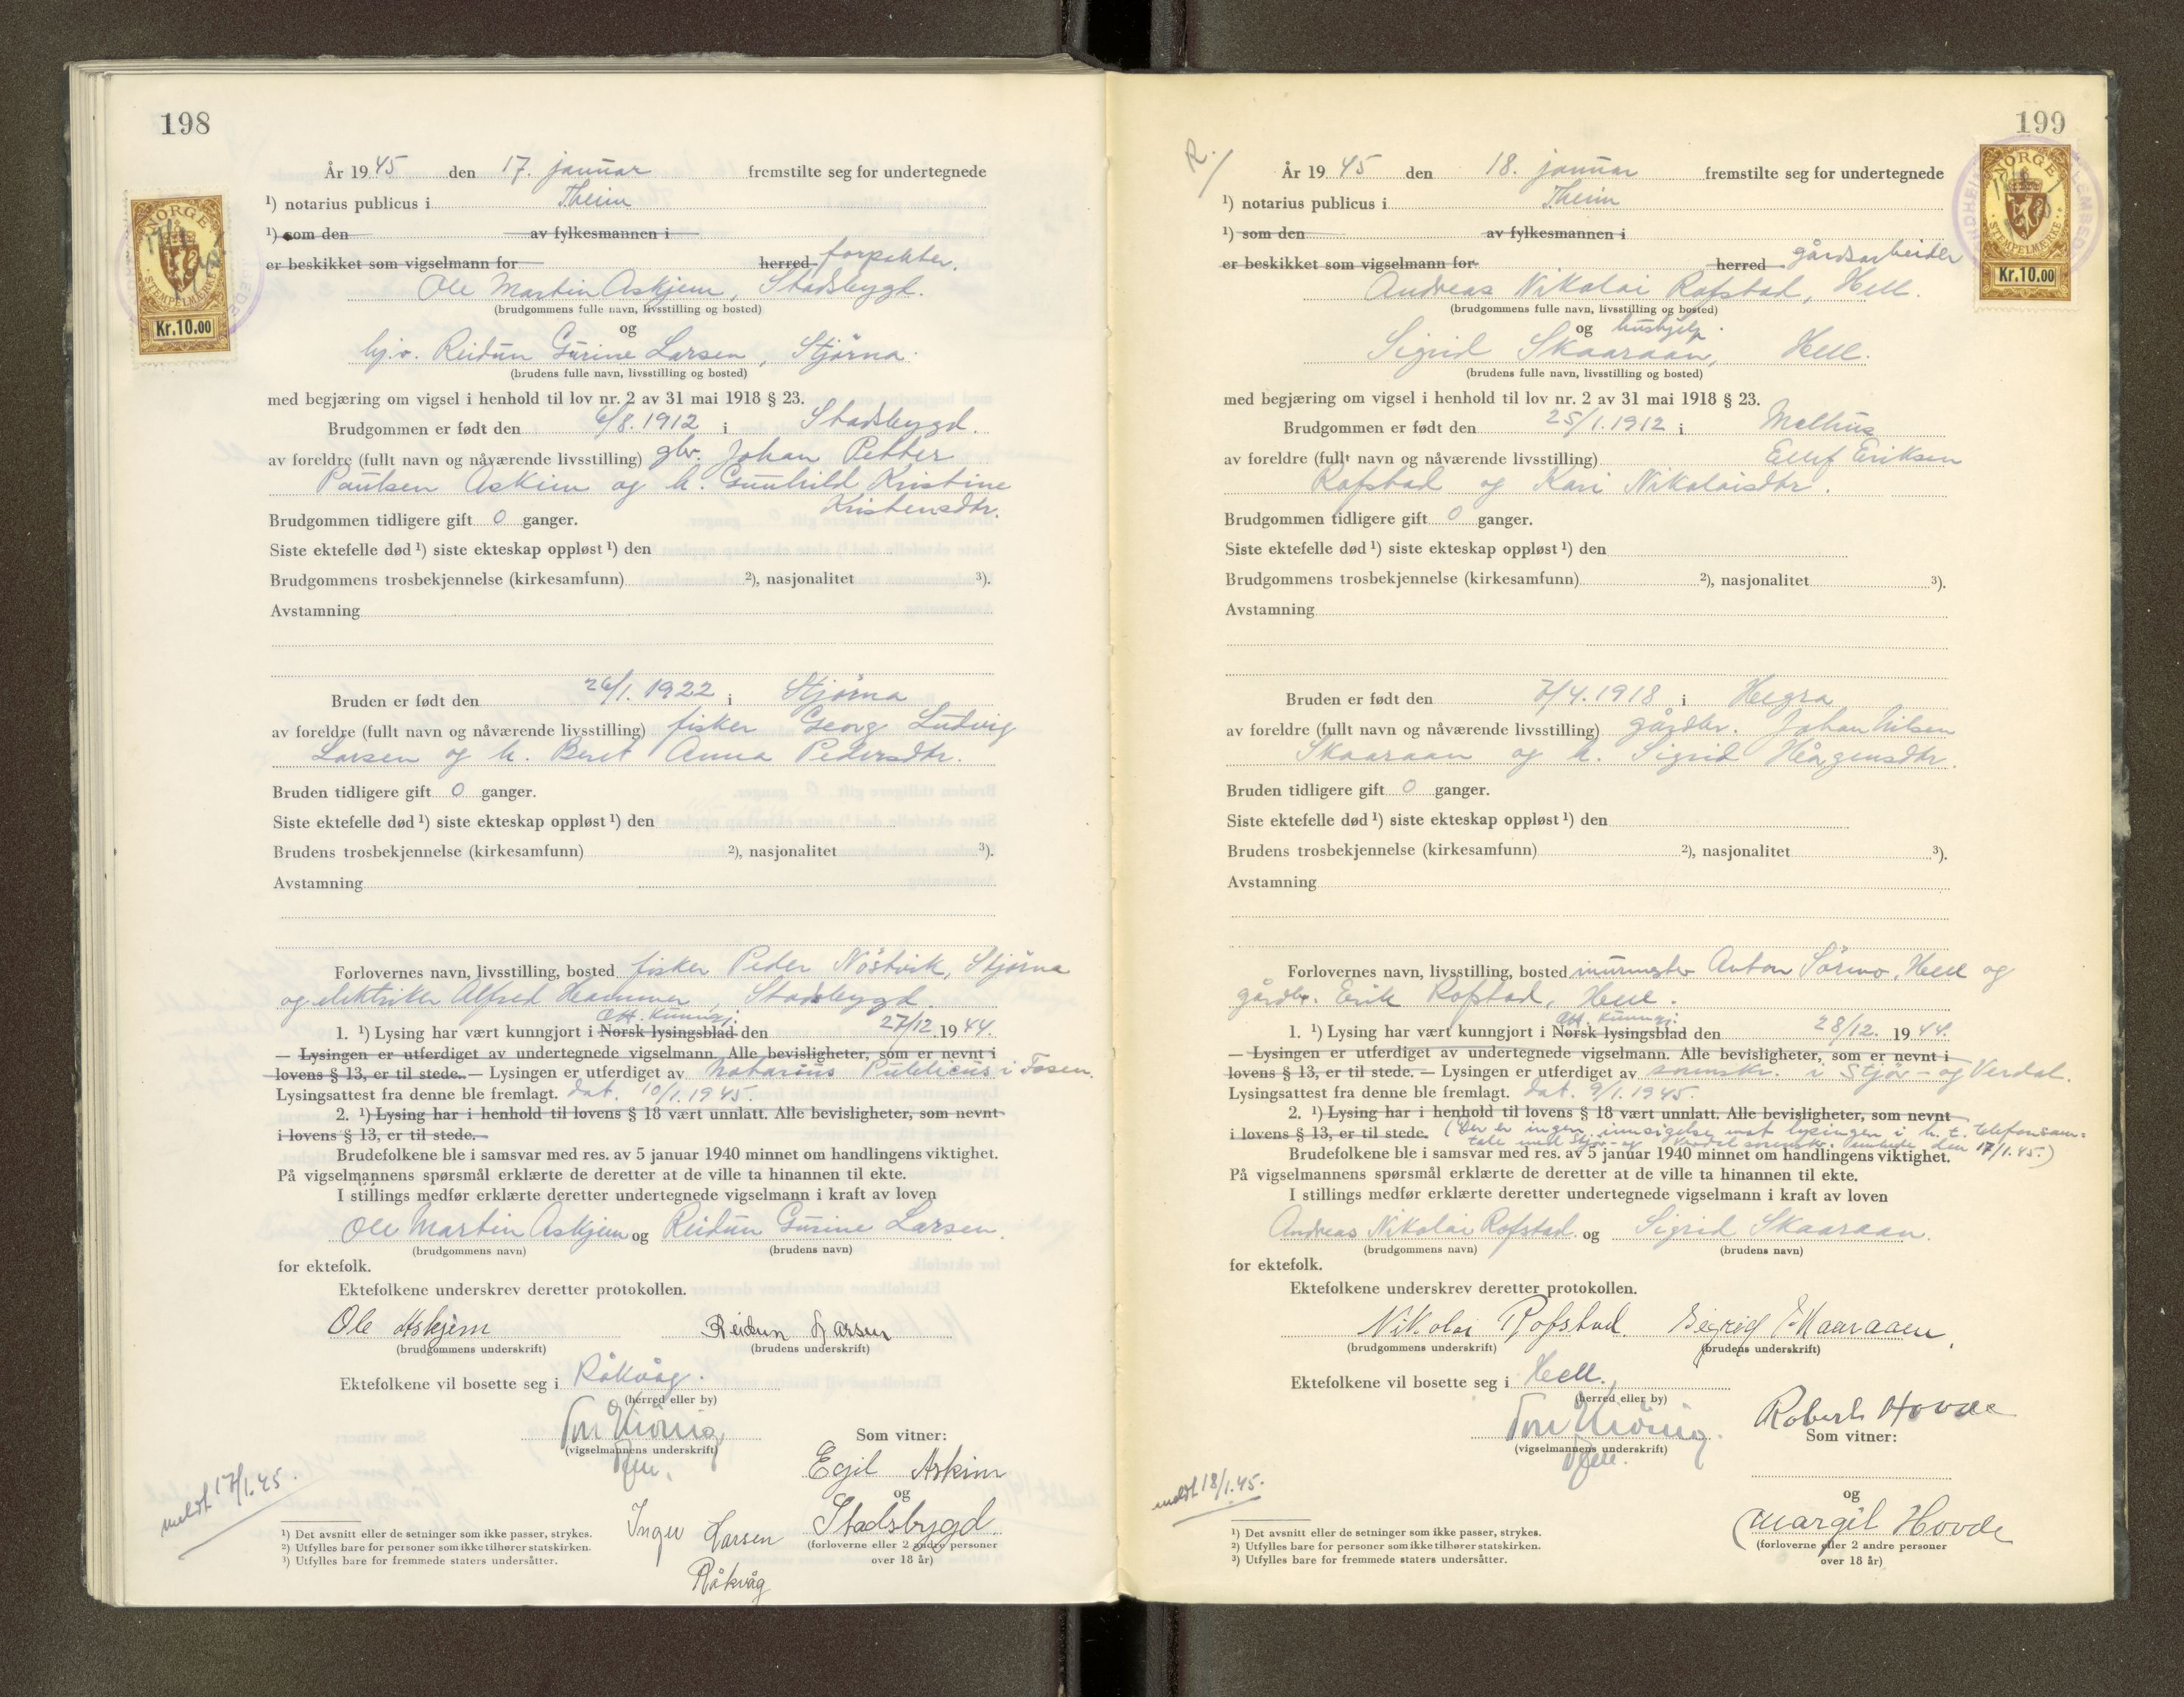 198
År 1945 den 17. januar fremstilte seg for undertegnede
¹) notarius publicus i Theim
¹) som den av fylkesmannen i
er beskikket som vigselmann for herred forpakter.
Ole Martin Askjem, Stadsbygd.
(brudgommens fulle navn, livsstilling og bosted)
og
hj.v. Reidun Gurine Larsen, Stjørna.
(brudens fulle navn, livsstilling og bosted)
med begjæring om vigsel i henhold til lov nr. 2 av 31 mai 1918 § 23.
Brudgommen er født den 6/8. 1912 i Stadsbygd.
av foreldre (fullt navn og nåværende livsstilling) gbr. Johan Petter
Paulsen Askim og h. Gunhild Kristine
Kristensdtr.
Brudgommen tidligere gift 0 ganger.
Siste ektefelle død ¹) siste ekteskap oppløst ¹) den
Brudgommens trosbekjennelse (kirkesamfunn) ²), nasjonalitet ³).
Avstamning
Bruden er født den 26/1. 1922 i Stjørna
av foreldre (fullt navn og nåværende livsstilling) fisker Georg Ludvig
Larsen og h. Beret Anna Pedersdtr.
Bruden tidligere gift 0 ganger.
Siste ektefelle død ¹) siste ekteskap oppløst ¹) den
Brudens trosbekjennelse (kirkesamfunn) ²), nasjonalitet ³).
Avstamning
Forlovernes navn, livsstilling, bosted fisker Peder Nöstvik, Stjørna
og elektriker Alfred Hammer, Stadsbygd.
Off. kunngj.
1. ¹) Lysing har vært kunngjort i Norsk lysingsblad den 27/12. 1944.
— Lysingen er utferdiget av undertegnede vigselmann. Alle bevisligheter, som er nevnt i
lovens § 13, er til stede. — Lysingen er utferdiget av notarius Publicus i Fosen.
Lysingsattest fra denne ble fremlagt. dat. 10/1. 1945.
2. ¹) Lysing har i henhold til lovens § 18 vært unnlatt. Alle bevisligheter, som nevnt
i lovens § 13, er til stede.
Brudefolkene ble i samsvar med res. av 5 januar 1940 minnet om handlingens viktighet.
På vigselmannens spørsmål erklærte de deretter at de ville ta hinannen til ekte.
I stillings medfør erklærte deretter undertegnede vigselmann i kraft av loven
Ole Martin Askjem og Reidun Gurine Larsen.
(brudgommens navn) (brudens navn)
for ektefolk.
Ektefolkene underskrev deretter protokollen.
Ole Askjem Reidun Larsen
(brudgommens underskrift) (brudens underskrift)
Ektefolkene vil bosette seg i Råkvåg.
(herred eller by)
(vigselmannens underskrift)
Som vitner:
Egil Askim
og
Stadsbygd
(forloverne eller 2 andre personer
over 18 år)
Inger Larsen
Råkvåg
meldt 17/1.45.
¹) Det avsnitt eller de setninger som ikke passer, strykes.
²) Utfylles bare for personer som ikke tilhører statskirken.
³) Utfylles bare for fremmede staters undersåtter.
NORGE
STEMPELMERKE
Kr.10.00
199
R./
År 1945 den 18. januar fremstilte seg for undertegnede
¹) notarius publicus i Theim
¹) som den av fylkesmannen i
er beskikket som vigselmann for herred gårdsarbeider
Andreas Nikolai Rofstad, Hell.
(brudgommens fulle navn, livsstilling og bosted)
og hushjelp.
Sigrid Skaaraan, Hell.
(brudens fulle navn, livsstilling og bosted)
med begjæring om vigsel i henhold til lov nr. 2 av 31 mai 1918 § 23.
Brudgommen er født den 25/1. 1912 i Melhus
av foreldre (fullt navn og nåværende livsstilling) Ellef Eriksen
Rofstad og Kari Nikolaisdtr.
Brudgommen tidligere gift 0 ganger.
Siste ektefelle død ¹) siste ekteskap oppløst ¹) den
Brudgommens trosbekjennelse (kirkesamfunn) ²), nasjonalitet ³).
Avstamning
Bruden er født den 7/4. 1918 i Hegra
av foreldre (fullt navn og nåværende livsstilling) gårdbr. Johan Nilsen
Skaaraan og h. Sigrid Hågensdtr.
Bruden tidligere gift 0 ganger.
Siste ektefelle død ¹) siste ekteskap oppløst ¹) den
Brudens trosbekjennelse (kirkesamfunn) ²), nasjonalitet ³).
Avstamning
Forlovernes navn, livsstilling, bosted murmester Anton Sörmo, Hell og
gårdbr. Erik Rofstad, Hell.
Off. kunngj.
1. ¹) Lysing har vært kunngjort i Norsk lysingsblad den 28/12. 1944.
— Lysingen er utferdiget av undertegnede vigselmann. Alle bevisligheter, som er nevnt i
lovens § 13, er til stede. — Lysingen er utferdiget av sorenskr. i Stjør- og Verdal.
Lysingsattest fra denne ble fremlagt. dat. 9/1. 1945.
2. ¹) Lysing har i henhold til lovens § 18 vært unnlatt. Alle bevisligheter, som nevnt
i lovens § 13, er til stede. (Der er ingen innsigelse mot lysingen i h. t. telefonsam=
tale med Stjør- og Verdal sorenskr. embede den 17/1.45.)
Brudefolkene ble i samsvar med res. av 5 januar 1940 minnet om handlingens viktighet.
På vigselmannens spørsmål erklærte de deretter at de ville ta hinannen til ekte.
I stillings medfør erklærte deretter undertegnede vigselmann i kraft av loven
Andreas Nikolai Rofstad. og Sigrid Skaaraan.
(brudgommens navn) (brudens navn)
for ektefolk.
Ektefolkene underskrev deretter protokollen.
Nikolai Rofstad. Sigrid Skaaraaen.
(brudgommens underskrift) (brudens underskrift)
Ektefolkene vil bosette seg i Hell.
(herred eller by)
(vigselmannens underskrift)
Robert Hovde
Som vitner:
og
Margit Hovde
(forloverne eller 2 andre personer
over 18 år)
meldt 18/1.45.
¹) Det avsnitt eller de setninger som ikke passer, strykes.
²) Utfylles bare for personer som ikke tilhører statskirken.
³) Utfylles bare for fremmede staters undersåtter.
NORGE
STEMPELMERKE
Kr.10.00